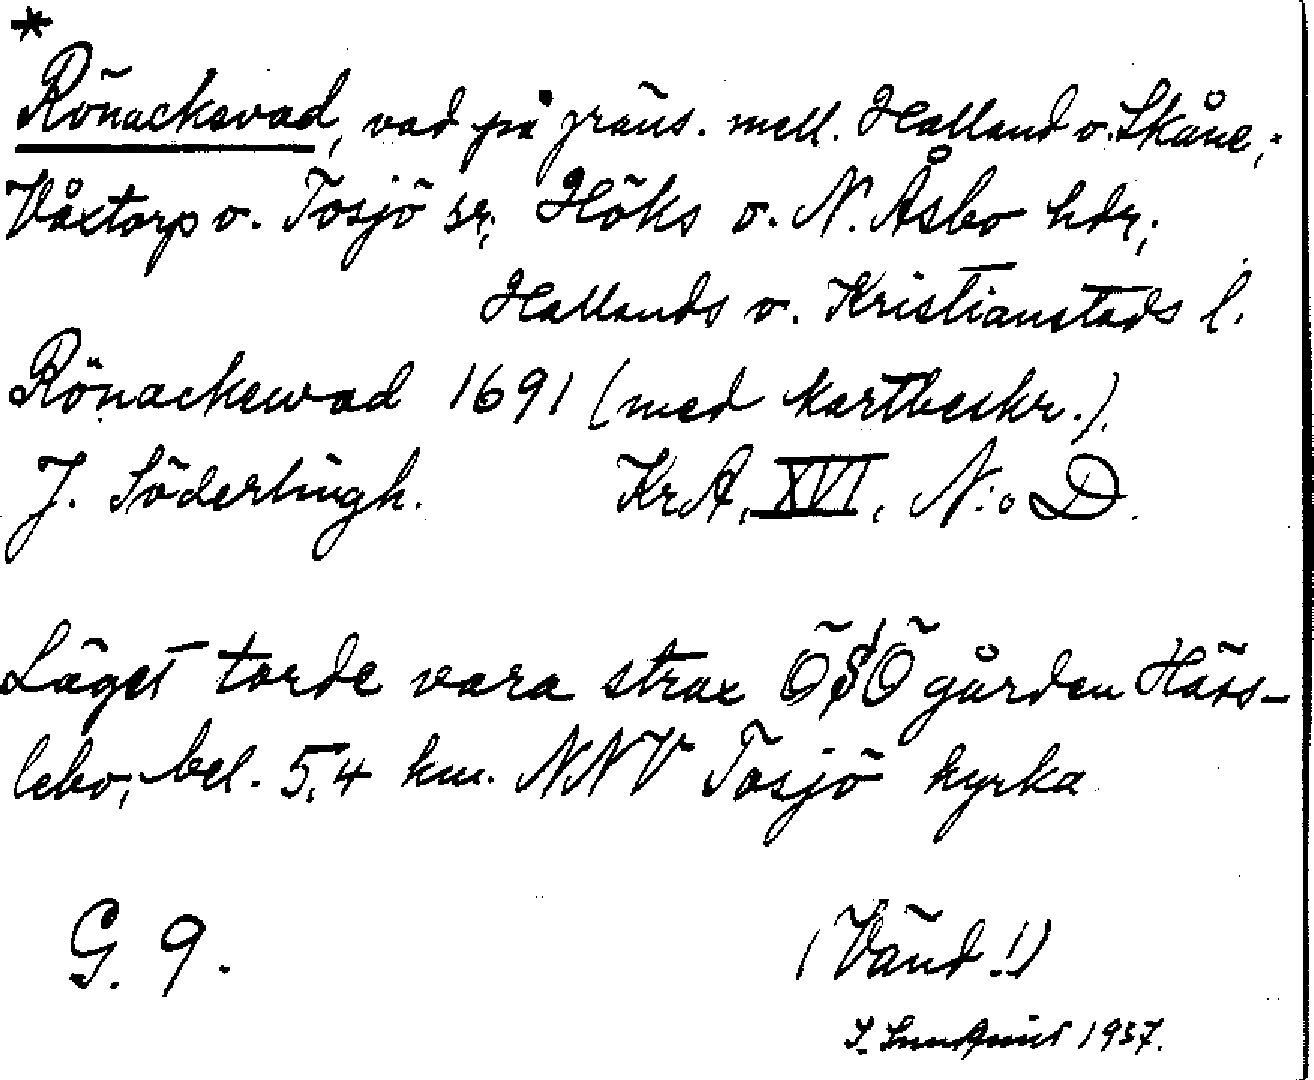 *
Rönackevad, vad på gräns. mell. Halland o. Skåne;
Våxtorp o. Tosjö sr, Höks o. N. Åsbo hdr;
Hallands o. Kristianstads l.
Rönackewad 1691 (med kartbeskr.).
J. Söderlingh. KrA, XVI, N:o D.
Läget torde vara strax ÖSÖ gården Häss-
lebo, bel. 5,4 km. NNV Tosjö kyrka
G. 9. (Vänd!)
I. Lundquist 1937.